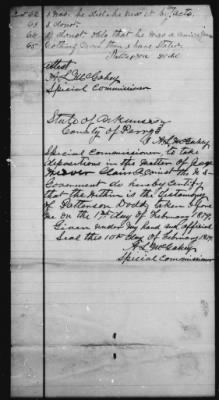 62 I was he did he use it by acts
63 I dont.
64 I dount Only that he was a union man
65 Nothing Over than I have Stated
Patterson Dodd
Attest
A L McCahey
Special Commissioner
State of Arkansas
County of Perry
I A L McCahey
Special Commissioner to take
depositions in the matter of
Weaver Claim Against the U S
Government do hereby Certify
that the Within is the testimony
of Patterson Dodd, taken before
me on the 1st day of February 1879,
Given under my hand and official
Seal this 10th day of February 1879
A L McCahey
Special Commissioner